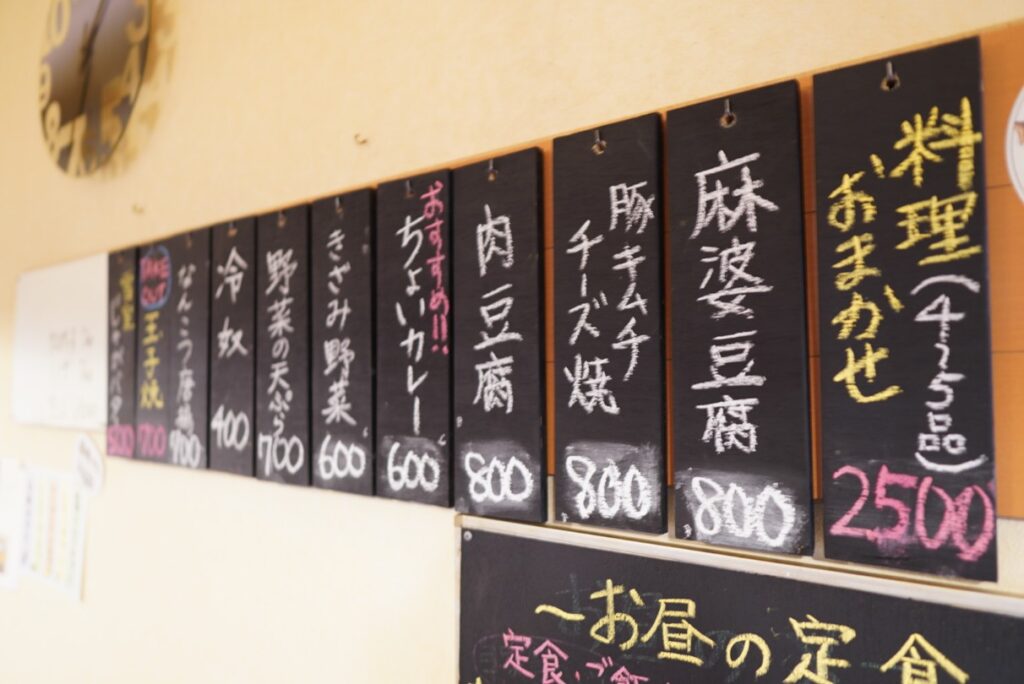 料理(4~5品)
おまかせ
2,500
麻婆豆腐
800
豚キムチ
チーズ焼
800
肉豆腐
800
おすすめ!!
ちょいカレー
600
きざみ野菜
600
野菜の天ぷら
700
冷奴
400
なんこつ唐揚
900
TAKE OUT
玉子焼
700
じゃがバター
500
~お昼の定食
定食、ご飯